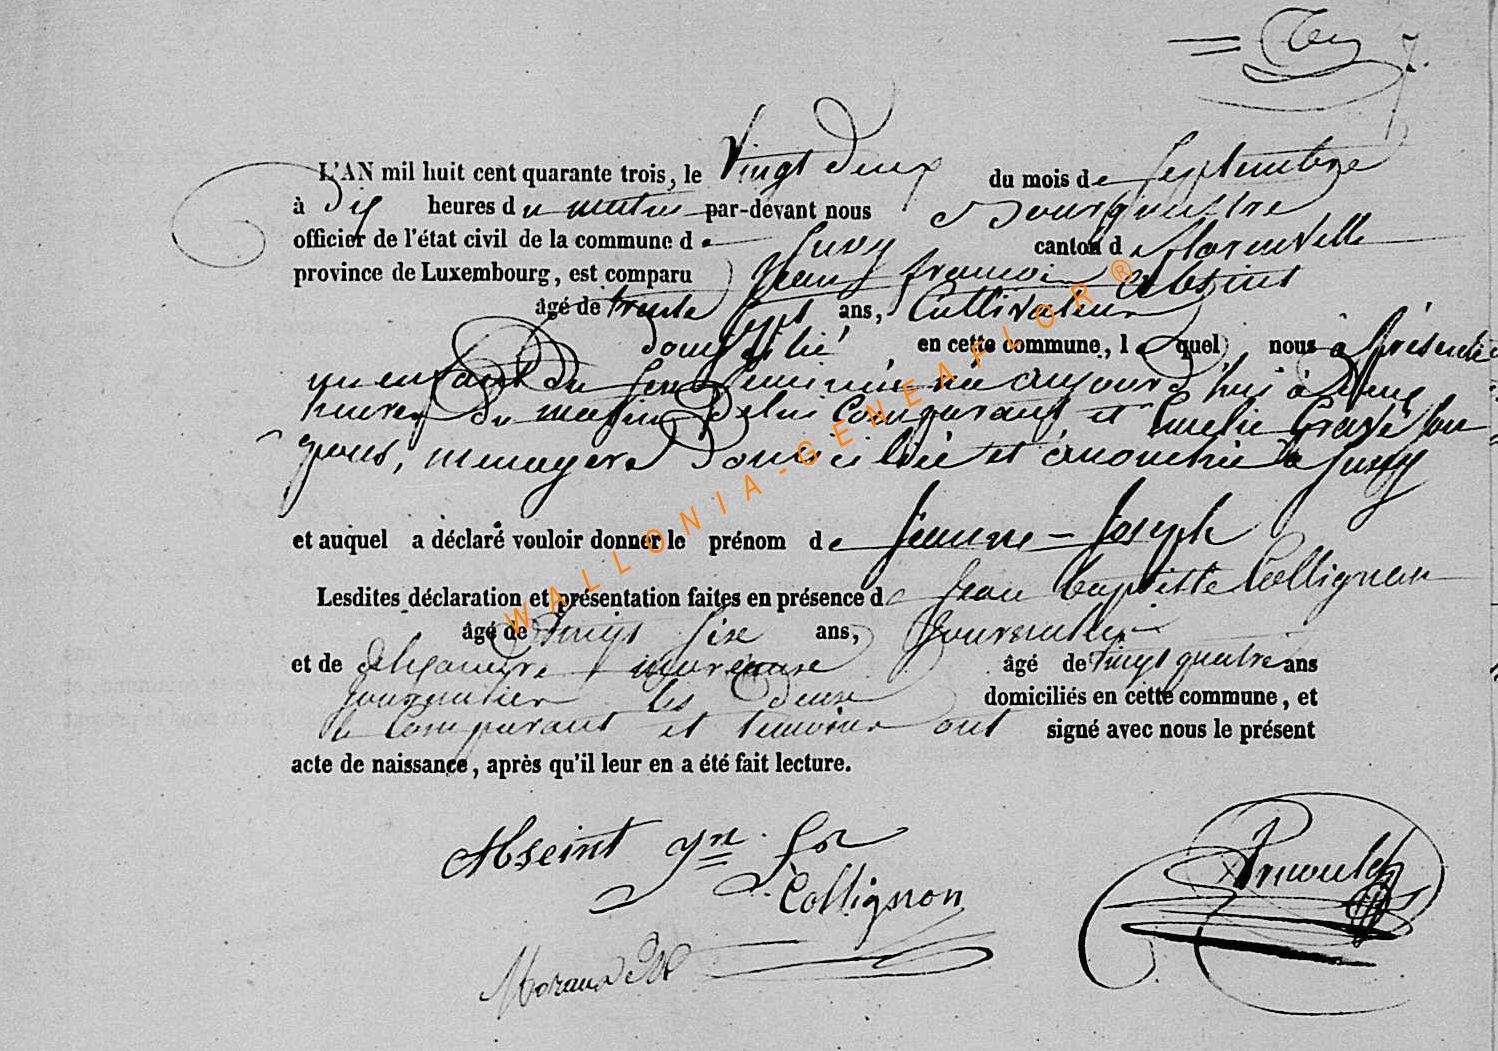 7.
L'AN mil huit cent quarante trois, le Vingt deux du mois de Septembre
à Dix heures du matin par-devant nous Bourgmestre
officier de l'état civil de la commune de Juvy canton de florenville
province de Luxembourg, est comparu Jean françois Abseint
âgé de trente Sept ans, Cultivateur
domicilié en cette commune, lequel nous a présenté
un enfant du sexe feminin née aujourd'hui à
heures du matin de lui Comparant et Emelie Son
menagere Domiciliée et à
et auquel a déclaré vouloir donner le prénom de Jeanne - Joseph
Lesdites déclaration et présentation faites en présence de Jean baptiste Collignon
âgé de Vingt Six ans, Journalier
et de âgé de Vingt quatre ans
journalier les deux domiciliés en cette commune, et
le Comparant et temoins ont signé avec nous le présent
acte de naissance, après qu'il leur en a été fait lecture.
Abseint jn fs
Collignon
Arnould
Moraux
WALLONIA-GENEAFLOR®